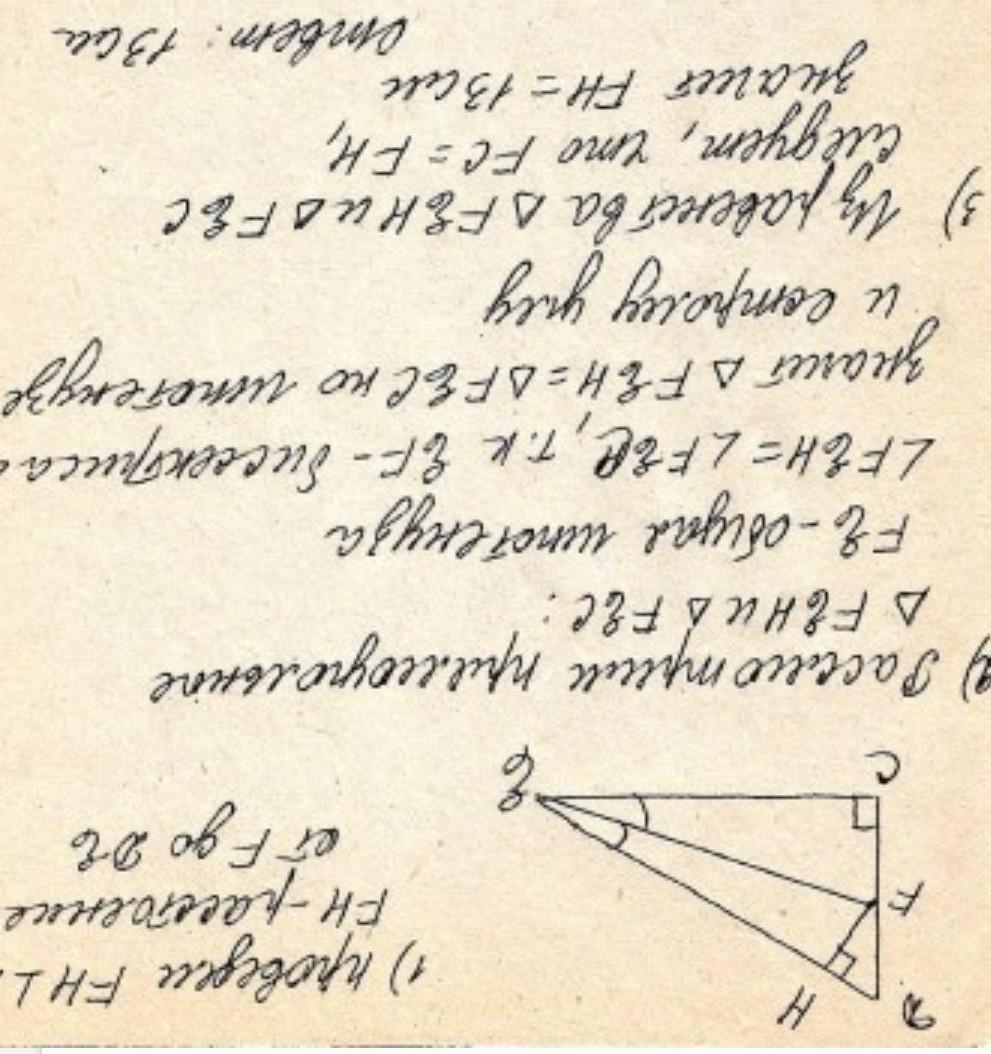 D
H
F
C
E
1) проведем FH⊥
FH - расстояние
от F до DE
2) Рассмотрим прямоугольные
△ FEH и △ FEC:
FE - общая гипотенуза
∠FEH = ∠FEC, т.к EF - биссектриса
значит △ FEH = △ FEC по гипотенузе
и острому углу
3) Из равенства △ FEH и △ FEC
следует, что FC = FH,
значит FH = 13 см
Ответ: 13 см